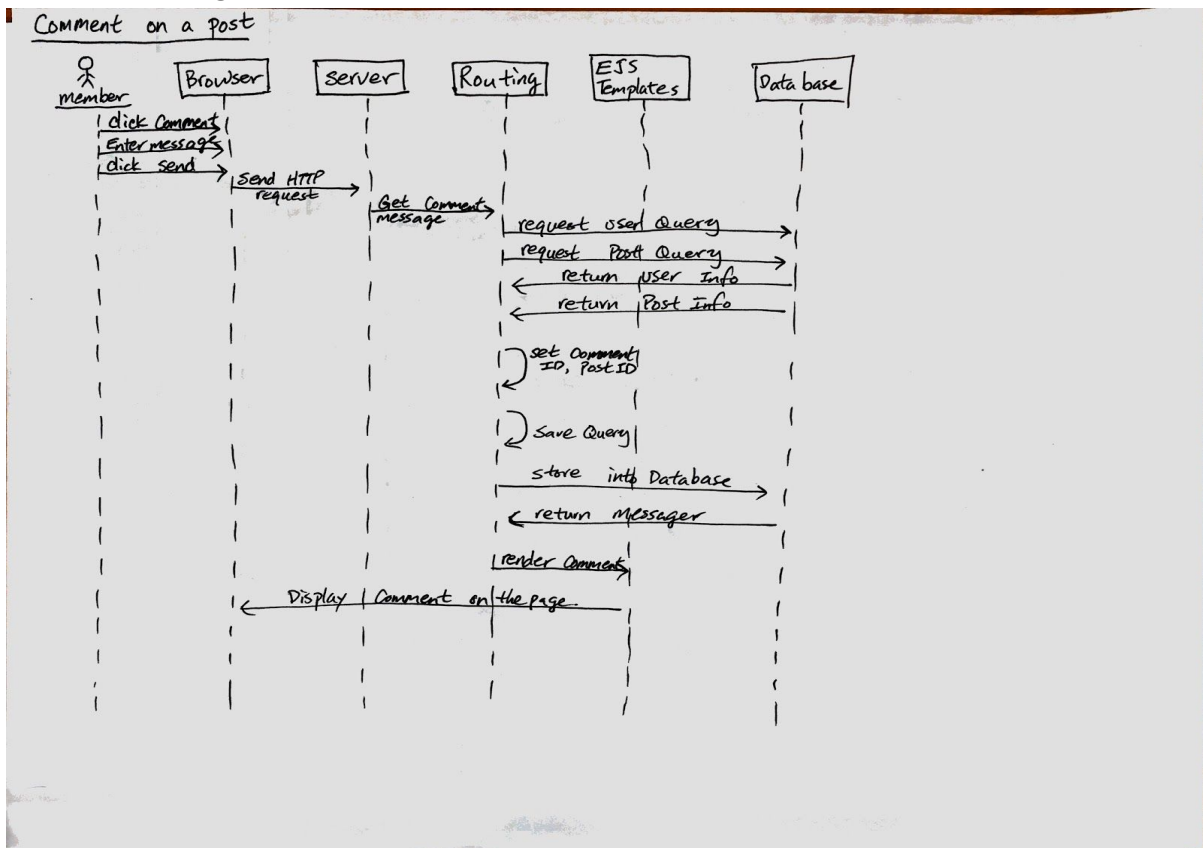 Comment on a post
member
Browser
server
Routing
EJS
Templates
Database
click Comment
Enter message
click send
Send HTTP
request
Get Comment
message
request User Query
request Post Query
return user Info
return Post Info
set Comment
ID, Post ID
Save Query
store into Database
return messager
render Comment
Display Comment on the page.